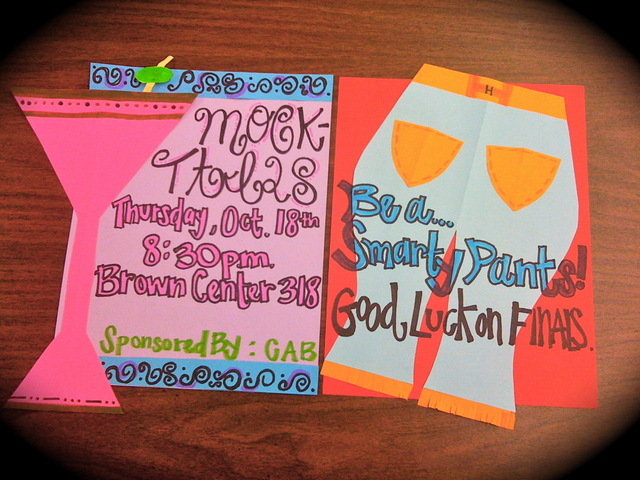 Mock-
Tails
Thursday, Oct. 18th
8:30pm.
Brown Center 318
Sponsored By: CAB
H
Be a...
Smarty Pants!
Good Luck on Finals.